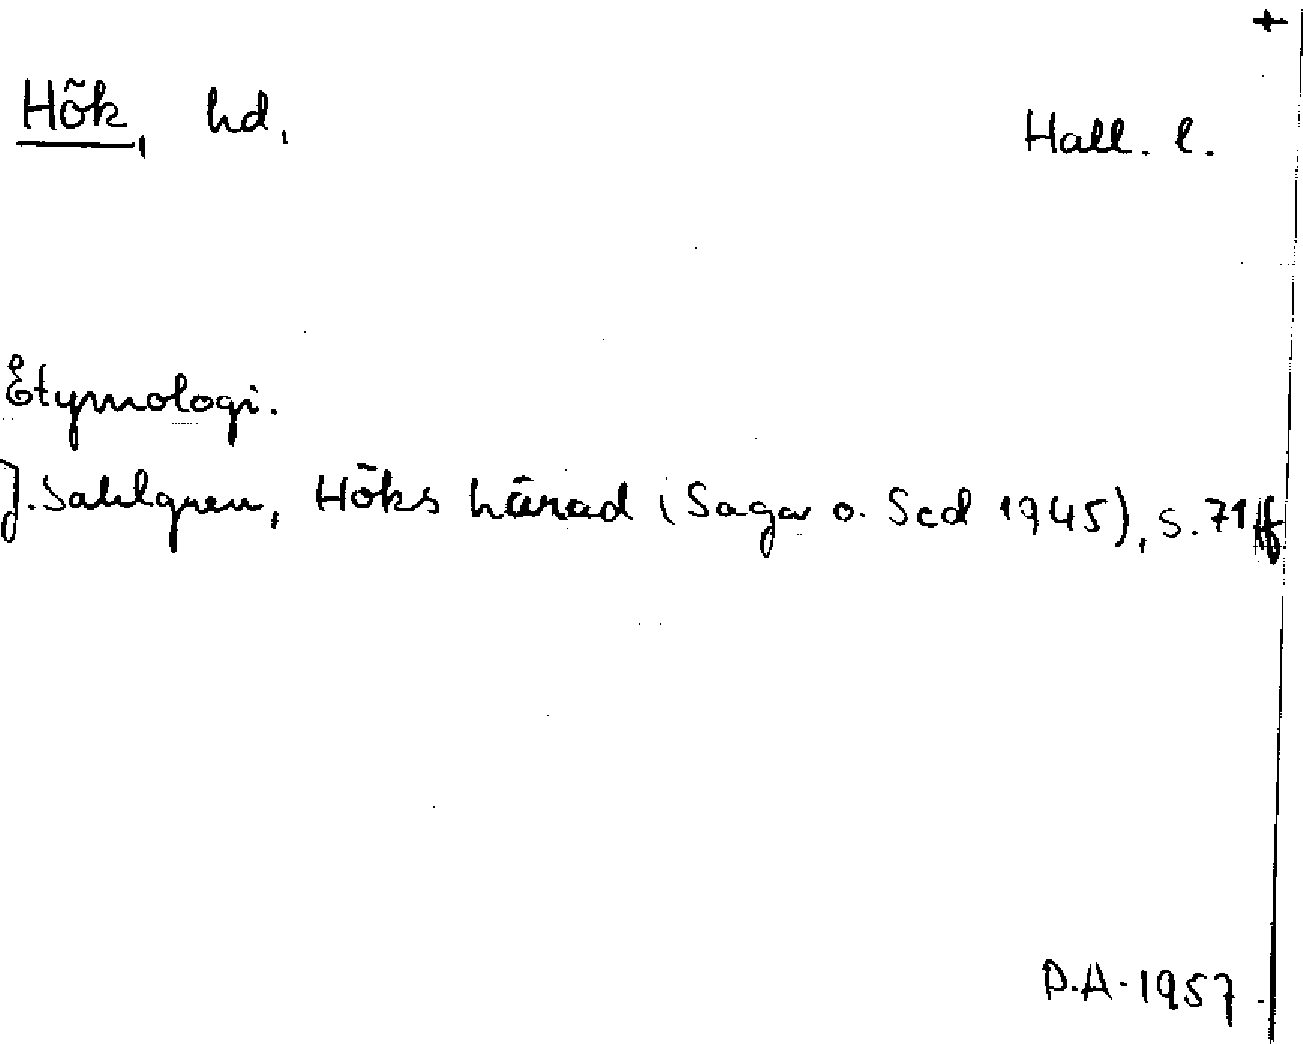 +
Hök, hd, Hall. l.
Etymologi.
J. Sahlgren, Höks härad (Sagor o. Sed 1945), s. 71 ff
D.A. 1957.